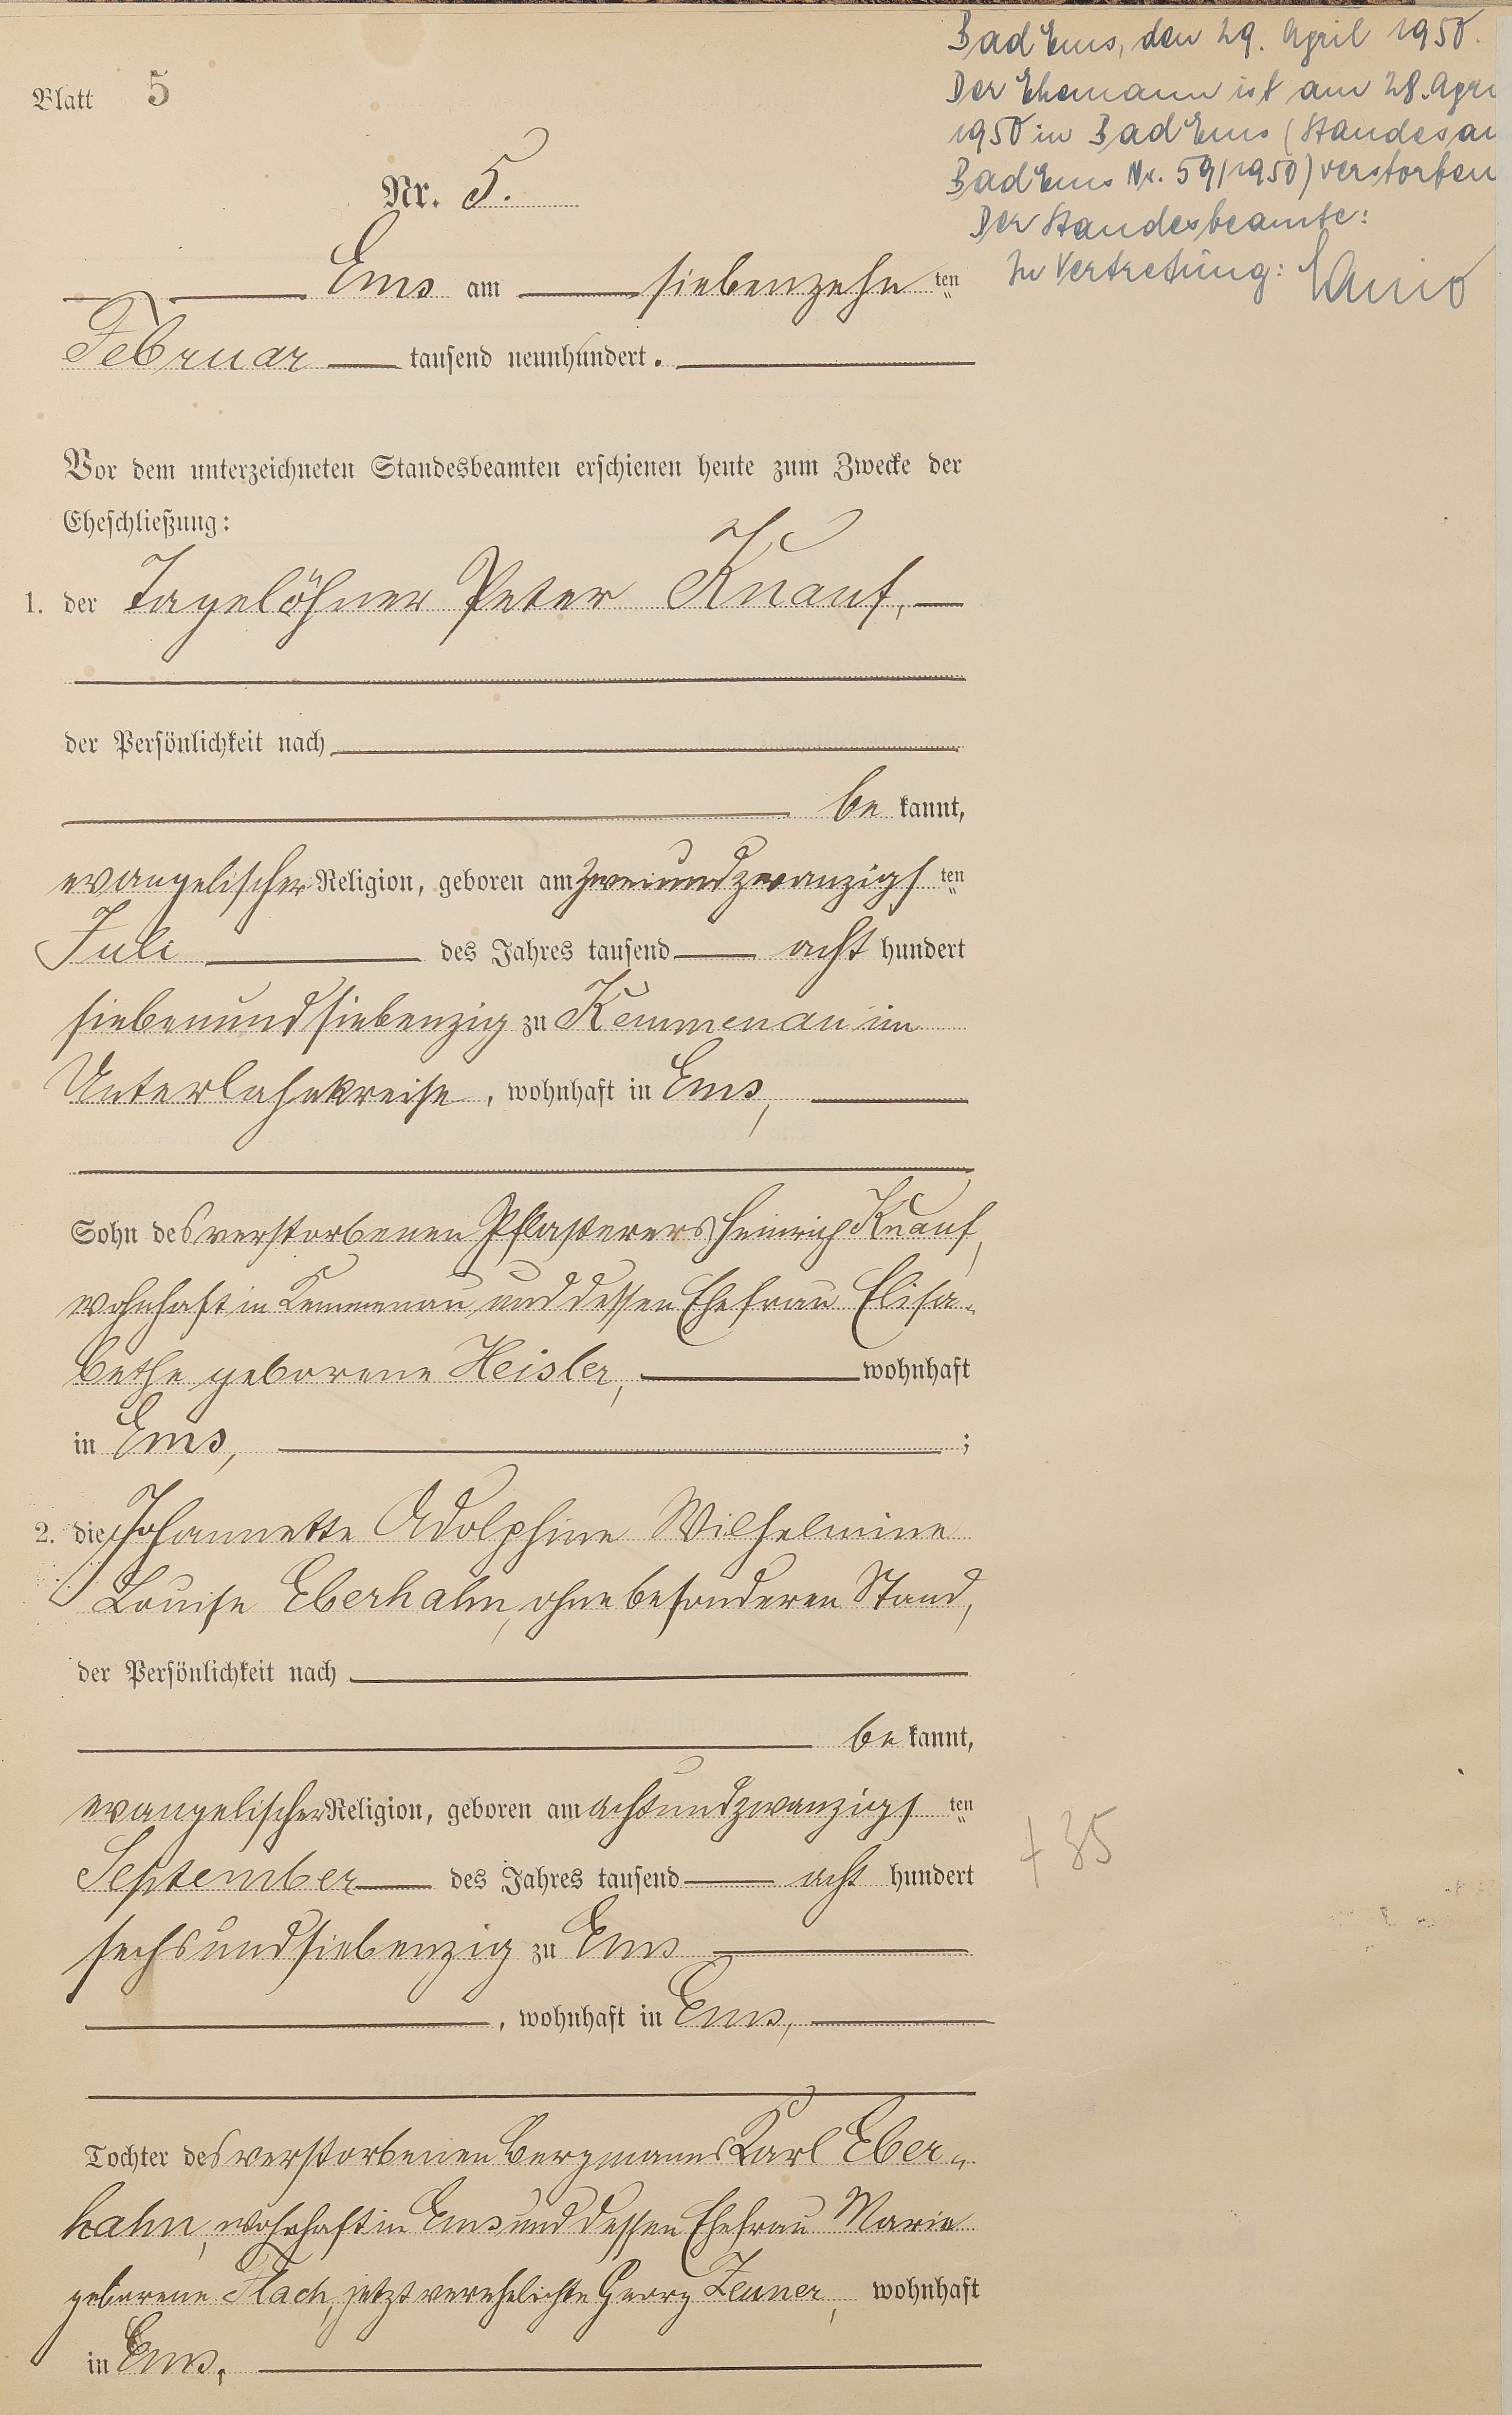 Blatt 5
Nr. 5.
Ems am siebenzehn ten
Februar tausend neunhundert.
Vor dem unterzeichneten Standesbeamten erschienen heute zum Zwecke der
Eheschließung:
1. der Tagelöhner Peter Knauf,
der Persönlichkeit nach
be kannt,
evangelischer Religion, geboren am zweiundzwanzigs ten
Juli des Jahres tausend acht hundert
siebenundsiebenzig zu Kemmenau im
Unterlahnkreise, wohnhaft in Ems,
Sohn des verstorbenen Pflasterers Heinrich Knauf,
wohnhaft in Kemmenau und dessen Ehefrau Elisa-
bethe geborene Heisler, wohnhaft
in Ems, ;
2. die Johannette Adolphine Wilhelmine
Louise Eberhahn, ohne besonderen Stand,
der Persönlichkeit nach
be kannt,
evangelischer Religion, geboren am achtundzwanzigs ten
September des Jahres tausend acht hundert
sechsundsiebenzig zu Ems
, wohnhaft in Ems,
Tochter des verstorbenen Bergmanns Karl Eber-
hahn, wohnhaft in Ems und dessen Ehefrau Marie
geborene Flach, jetzt verehelichte Georg Zeuner, wohnhaft
in Ems.
Bad Ems, den 29. April 1950.
Der Ehemann ist am 28. Apri
1950 in Bad Ems (Standesam
Bad Ems Nr. 59/1950) verstorben
Der Standesbeamte:
In Vertretung:
+ 35